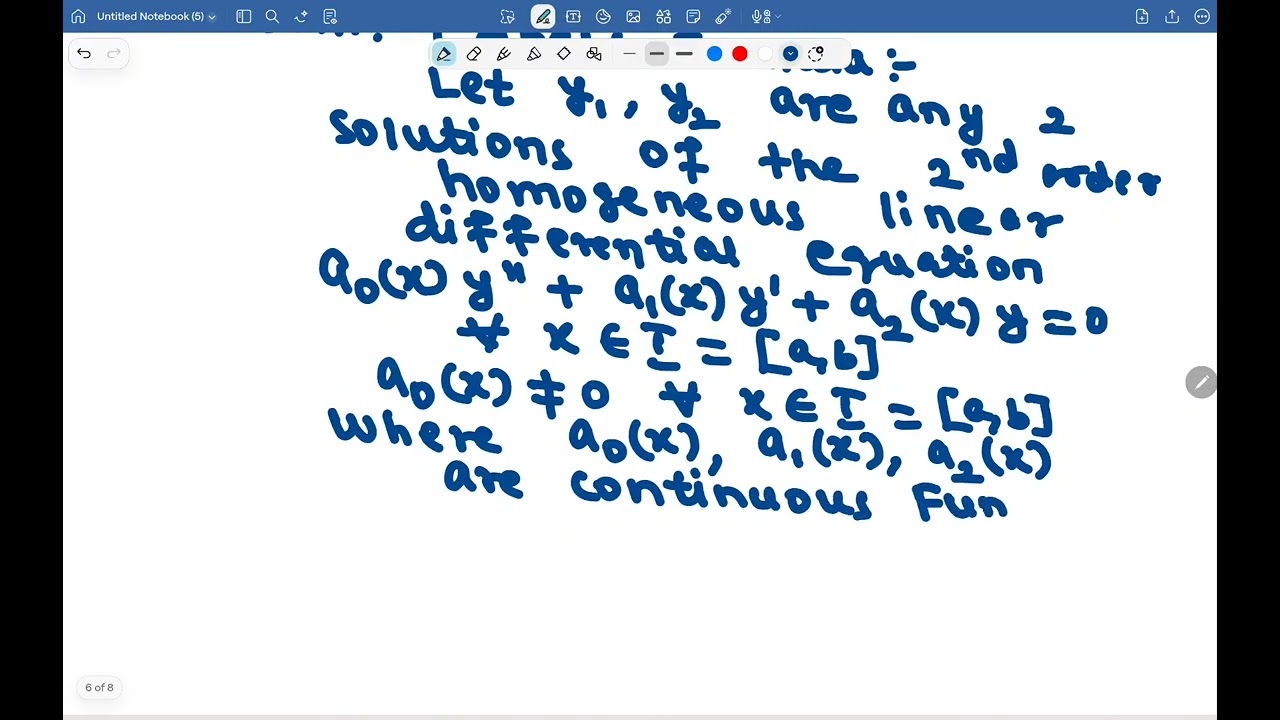 Untitled Notebook (5)
Let y₁, y₂ are any 2
solutions of the 2nd order
homogeneous linear
differential equation
a₀(x) y" + a₁(x) y' + a₂(x) y = 0
∀ x ∈ I = [a,b]
a₀(x) ≠ 0 ∀ x ∈ I = [a,b]
where a₀(x), a₁(x), a₂(x)
are continuous fun
6 of 8